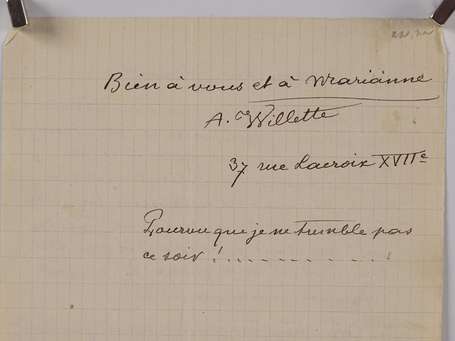 Bien à vous et à Marianne
A. Willette
37 rue Lacroix XVIIe
Pourvu que je ne tremble pas
ce soir !..........!